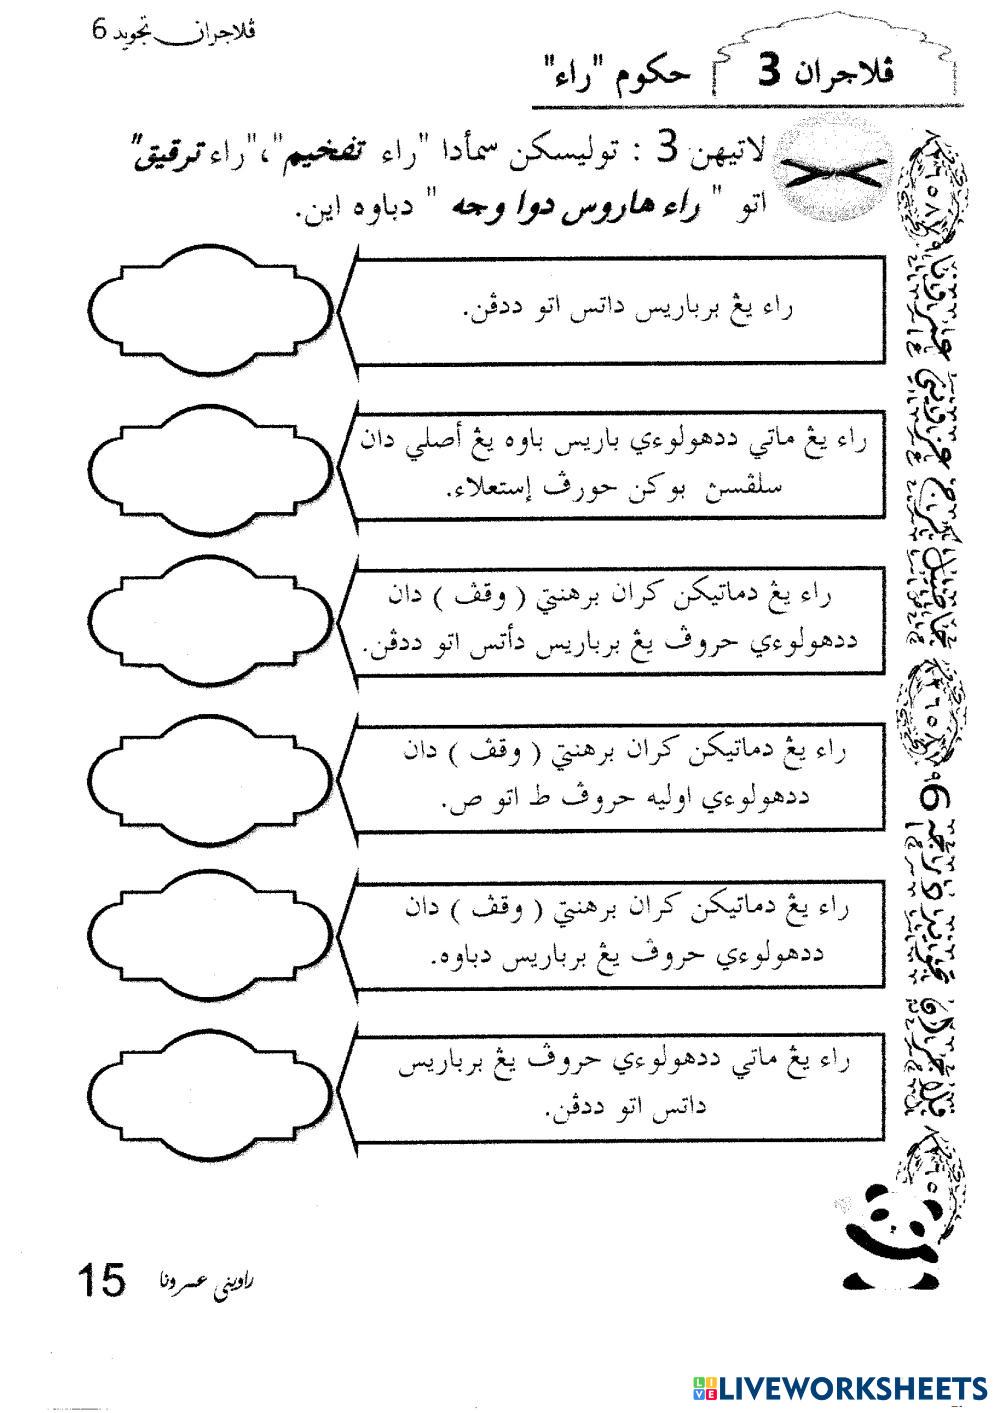 ڤلاجران تجويد 6
ڤلاجران 3
حكوم "راء"
لاتيهن 3 : توليسكن سمأدا "راء تفخيم"،"راء ترقيق"
اتو " راء هاروس دوا وجه " دباوه اين.
راء يڠ برباريس داتس اتو ددڤن.
راء يڠ ماتي ددهولوءي باريس باوه يڠ أصلي دان
سلڤسڽ بوكن حورڤ إستعلاء.
راء يڠ دماتيكن كران برهنتي ( وقڤ ) دان
ددهولوءي حروڤ يڠ برباريس دأتس اتو ددڤن.
راء يڠ دماتيكن كران برهنتي ( وقڤ ) دان
ددهولوءي اوليه حروڤ ط اتو ص.
راء يڠ دماتيكن كران برهنتي ( وقڤ ) دان
ددهولوءي حروڤ يڠ برباريس دباوه.
راء يڠ ماتي ددهولوءي حروڤ يڠ برباريس
داتس اتو ددڤن.
راويني عسرونا
15
LIVEWORKSHEETS